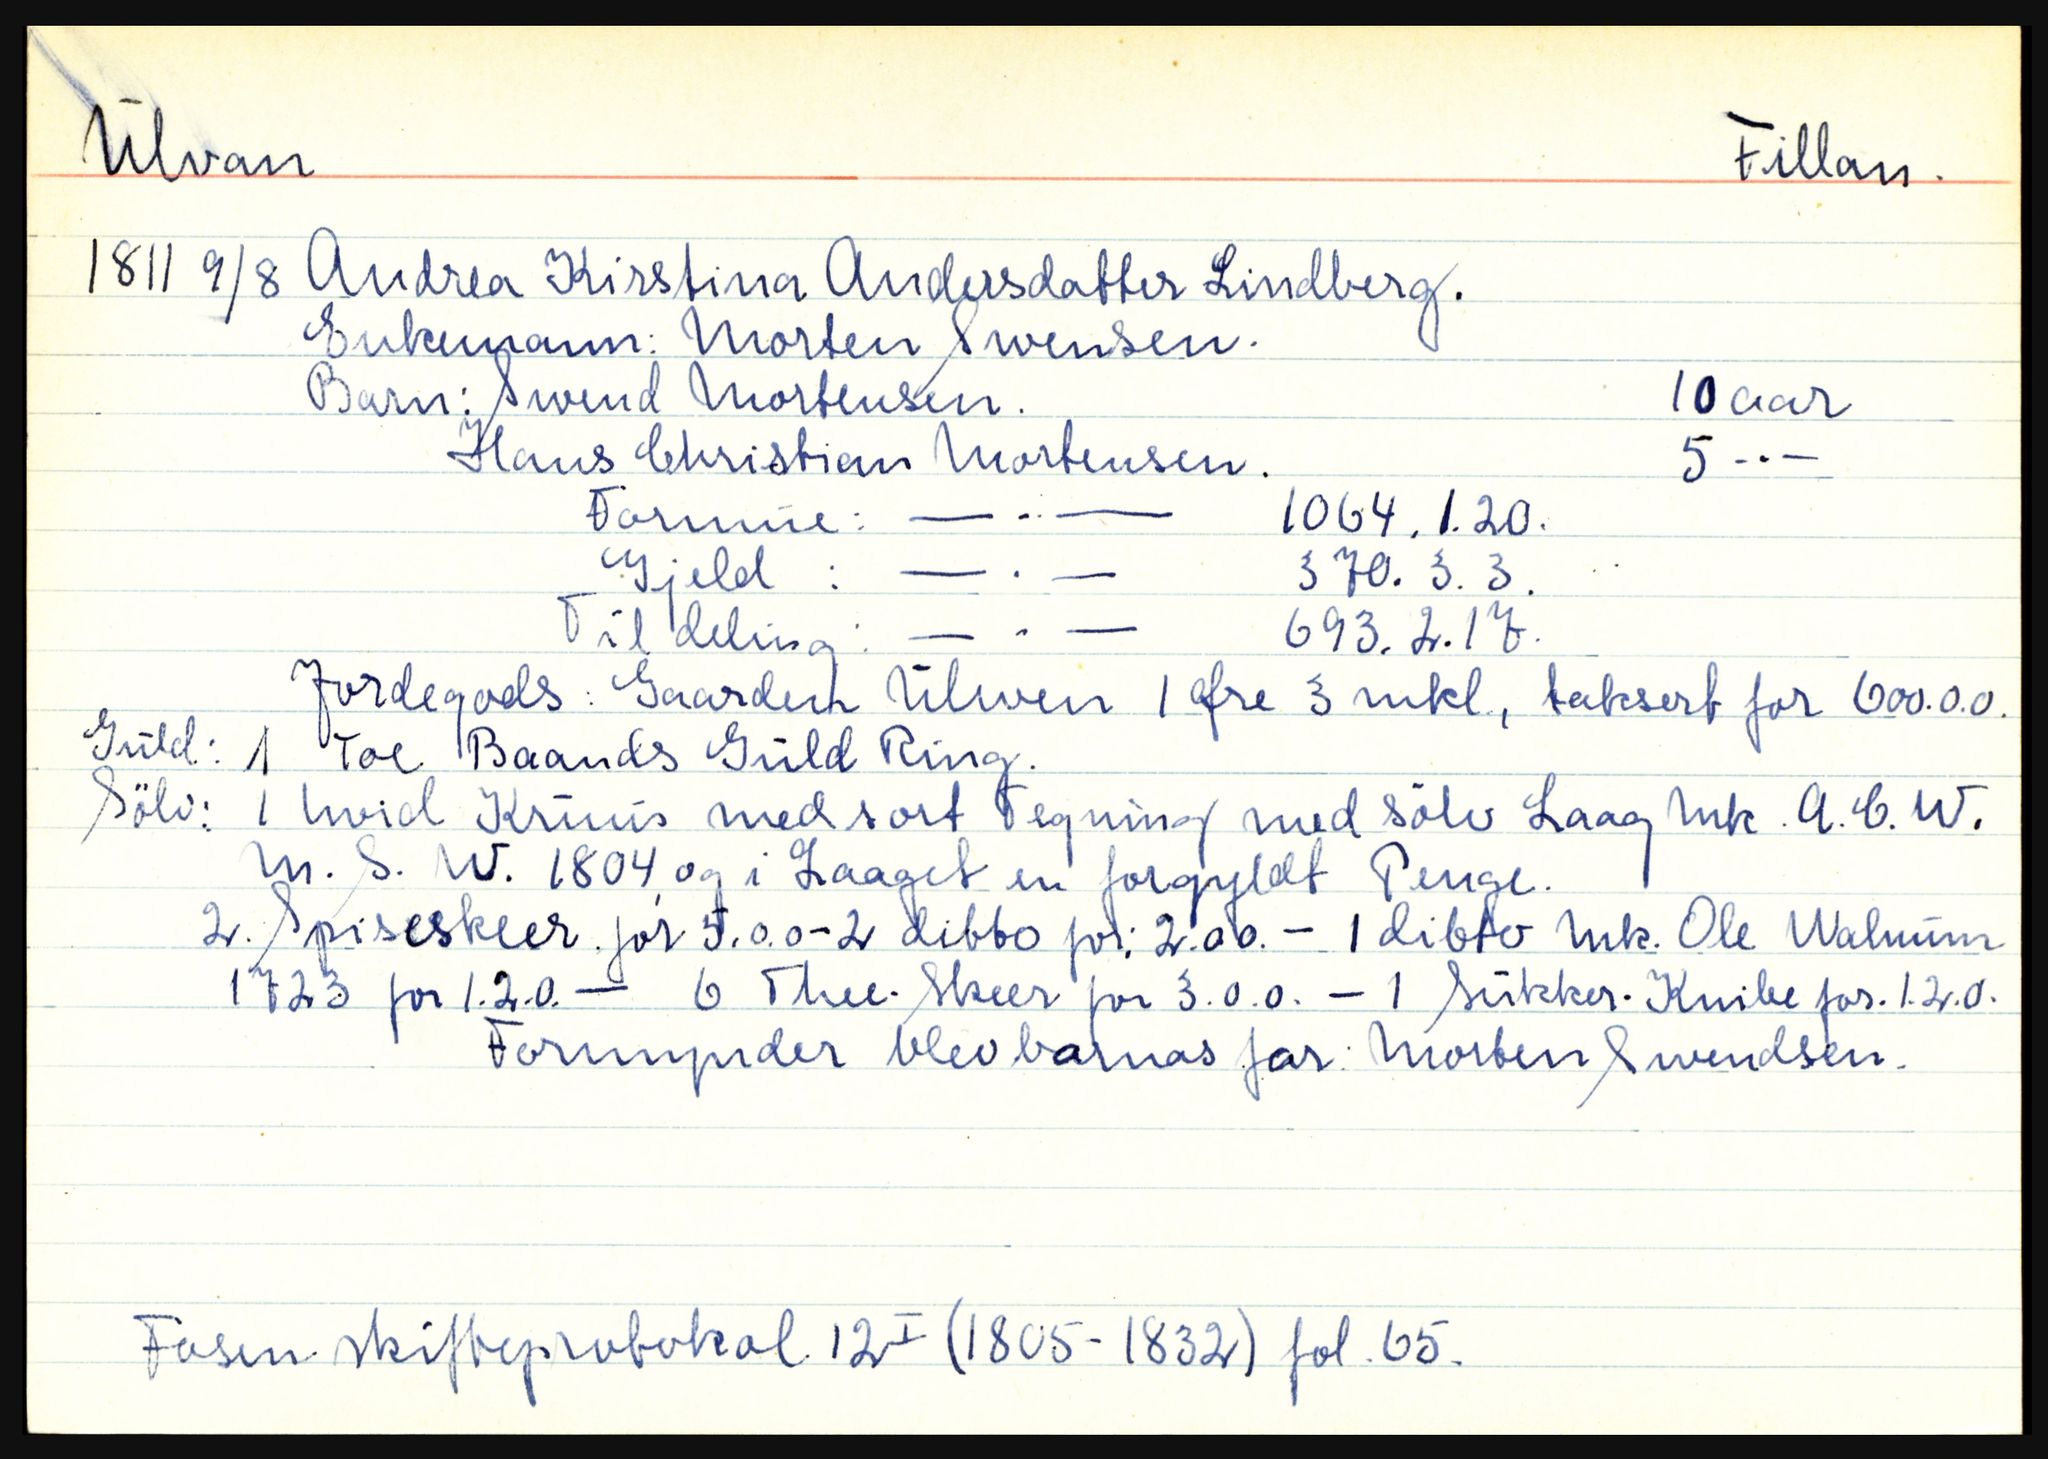 Ulvan Fillan.
1811 9/8 Andrea Kirstina Andersdatter Lindberg.
Enkemann: Morten Swensen.
Barn: Swend Mortensen. 10 aar
Hans Christian Mortensen. 5 -·-
Formue: — ·· — 1064.1.20.
Gjeld : — · — 370.3.3.
Til deling: — · — 693.2.17.
Jordegods: Gaarden Ulwen 1 øre 3 mkl, taksert for 600.0.0.
Guld: 1 Toe Baands Guld Ring.
Sölv: 1 hvid Kruus med sort Tegning med sölv Laag Mk. A.C.W.
M.S.W. 1804, og i Laaget en forgyldt Penge.
2 Spiseskeer for 5.0.0 - 2 ditto for: 2.00. - 1 ditto Mk. Ole Walnum
1723 for 1.2.0. — 6 Thee-Skeer for 3.0.0. - 1 Sukker-Knibe for 1.2.0.
Formynder blev barnas far: Morten Swendsen.
Fosen skifteprotokol 12 I (1805-1832) fol. 65.